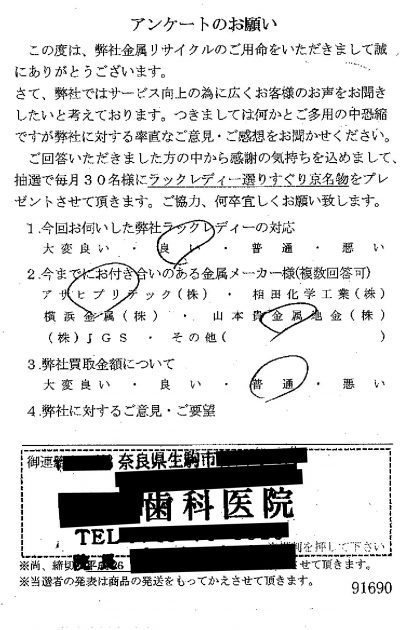 アンケートのお願い
この度は、弊社金属リサイクルのご用命をいただきまして誠
にありがとうございます。
さて、弊社ではサービス向上の為に広くお客様のお声をお聞き
したいと考えております。つきましては何かとご多用の中恐縮
ですが弊社に対する率直なご意見・ご感想をお聞かせください。
ご回答いただきました方の中から感謝の気持ちを込めまして、
抽選で毎月30名様にラックレディー選りすぐり京名物をプレ
ゼントさせて頂きます。ご協力、何卒宜しくお願い致します。
1.今回お伺いした弊社ラックレディーの対応
大変良い・良い・普通・悪い
2.今までにお付き合いのある金属メーカー様(複数回答可)
アサヒプリテック(株)・相田化学工業(株)
横浜金属(株)・山本貴金属地金(株)
(株)JGS・その他( )
3.弊社買取金額について
大変良い・良い・普通・悪い
4.弊社に対するご意見・ご要望
御連 奈良県生駒市
歯科医院
TEL
判を押して下さい
※尚、締切 平成26 せて頂きます。
※当選者の発表は商品の発送をもってかえさせて頂きます。
91690